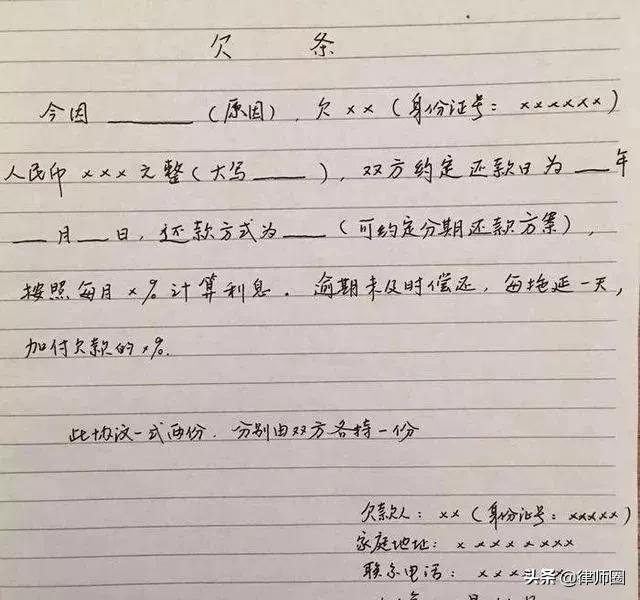 欠 条
今因 ______ （原因），欠 ×× （身份证号：××××××）
人民币 ××× 元整（大写____），双方约定还款日为__年
__月__日，还款方式为____（可约定分期还款方案），
按照每月×%计算利息。逾期未及时偿还，每拖延一天，
加付欠款的×%.
此协议一式两份．分别由双方各持一份
欠款人：××（身份证号：×××××）
家庭地址：××××××××
联系电话：×××
头条 @律师圈